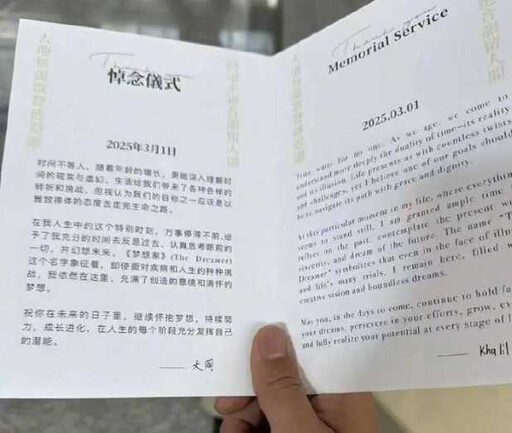 悼念儀式
2025年3月1日
时间不等人，随着年龄的增长，更能深入理解时
间的现实与虚幻，生活给我们带来了各种各样的
转折和挑战，但我认为我们的目标之一应该是以
舞放得体的态度去走完生命之路。
在我人生中的这个特别时刻，万事停滞不前，给
予了我充分的时间去反思过去、认真思考眼前的
一切，并幻想未来。《梦想家》(The Dreamer)
这个名字象征着，即使面对疾病和人生的种种挑
战，我依然在这里，充满了创造的意境和满怀的
梦想。
祝你在未来的日子里，继续怀抱梦想，持续努
力，成长进化，在人生的每个阶段充分发挥自己
的潜能。
—— 大同
Thank you
Memorial Service
2025.03.01
Time waits for no one. As we age, we come to
understand more deeply the duality of time—its reality
and its illusion. Life presents us with countless twists
and challenges, yet I believe one of our goals should
be to navigate its path with grace and dignity.
At this particular moment in my life, where everything
seems to stand still, I am granted ample time
reflect on the past, contemplate the present wi
sincerity, and dream of the future. The name "T
Dreamer" symbolizes that even in the face of illne
and life's many trials, I remain here, filled w
creative vision and boundless dreams.
May you, in the days to come, continue to hold fa
your dreams, persevere in your efforts, grow, ev
and fully realize your potential at every stage of l
—— Khalil